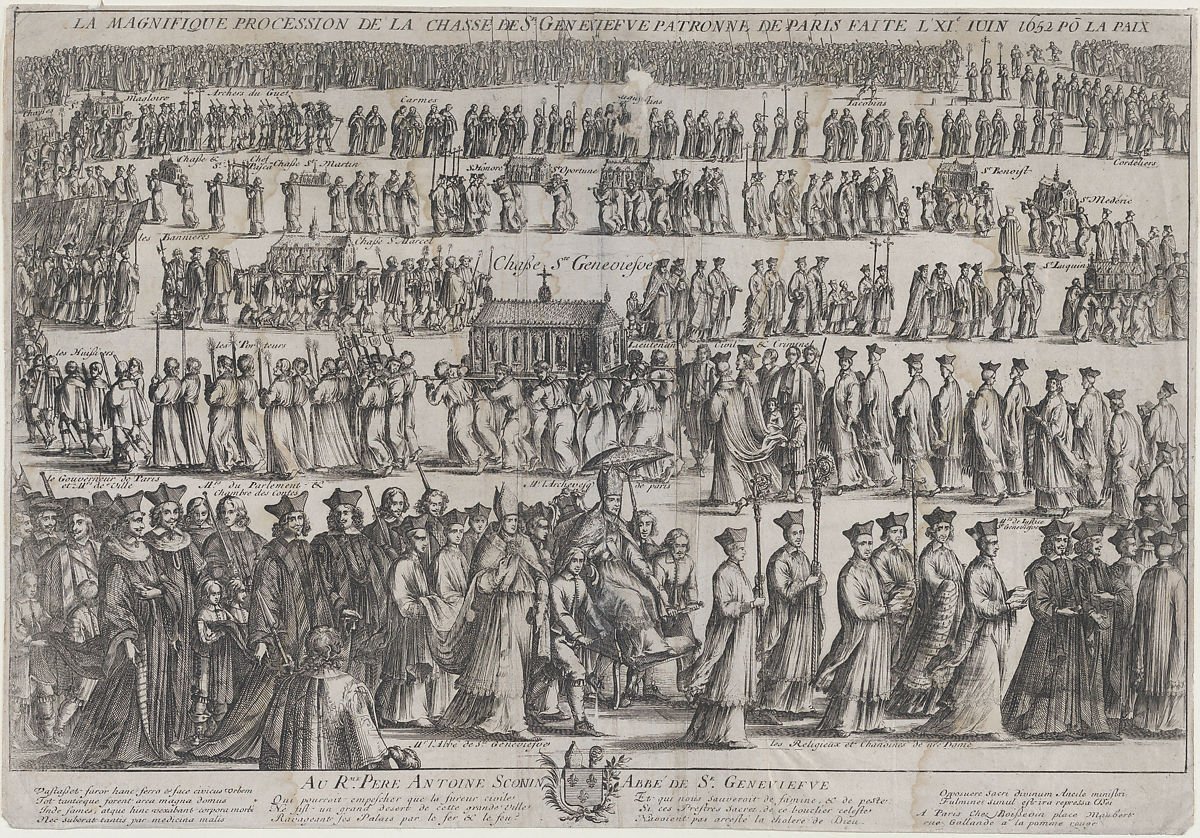 LA MAGNIFIQUE PROCESSION DE LA CHASSE DE Ste GENEVIEFVE PATRONNE DE PARIS FAITE L'XIe IUIN 1652 PO LA PAIX
Chaßes
Magloire
Archers du Guet
Carmes
Augustins
Iacobins
Cordeliers
Chaße &
Chef
Chaße St Martin
St Honoré
Ste Oportune
St Benoist
St Mederic
les Bannieres
Chaße St Marcel
Chaße Ste Geneviefve
St Luquin
les Huißiers
les Porteurs
Lieutenans Civil & Criminel
le Gouverneur de Paris
et Mrs de Ville
Mrs du Parlement &
Chambre des Contes
Mr l'Archevesq de paris
Mr l'Abbé de Ste Geneviefve
les Religieux et Chanoines de nre Dame
AU Rme PERE ANTOINE SCONIN ABBÉ DE Ste GENEVIEFVE
Vastaßet furor hanc ferro et face civicus urbem
Tot tantæque forent area magna domus
Inde fames, atque hinc vexabant corpora morbi
Nec suberat tantis par medicina malis
Qui pourroit empescher que la fureur civile
Ne fist un grand desert de cette grande Ville
Ravageant ses Palais par le fer & le feu
Et qui nous sauveroit de famine & de peste
Si ces Prestres Sacrez, ce bouclier celeste
N'avoient pas aresté la cholere de Dieu
Opposuere sacri divinum Ancile ministri
Fulmina simul
A Paris Chez Boißevin place Maubert
rue Gallande a la pomme rouge